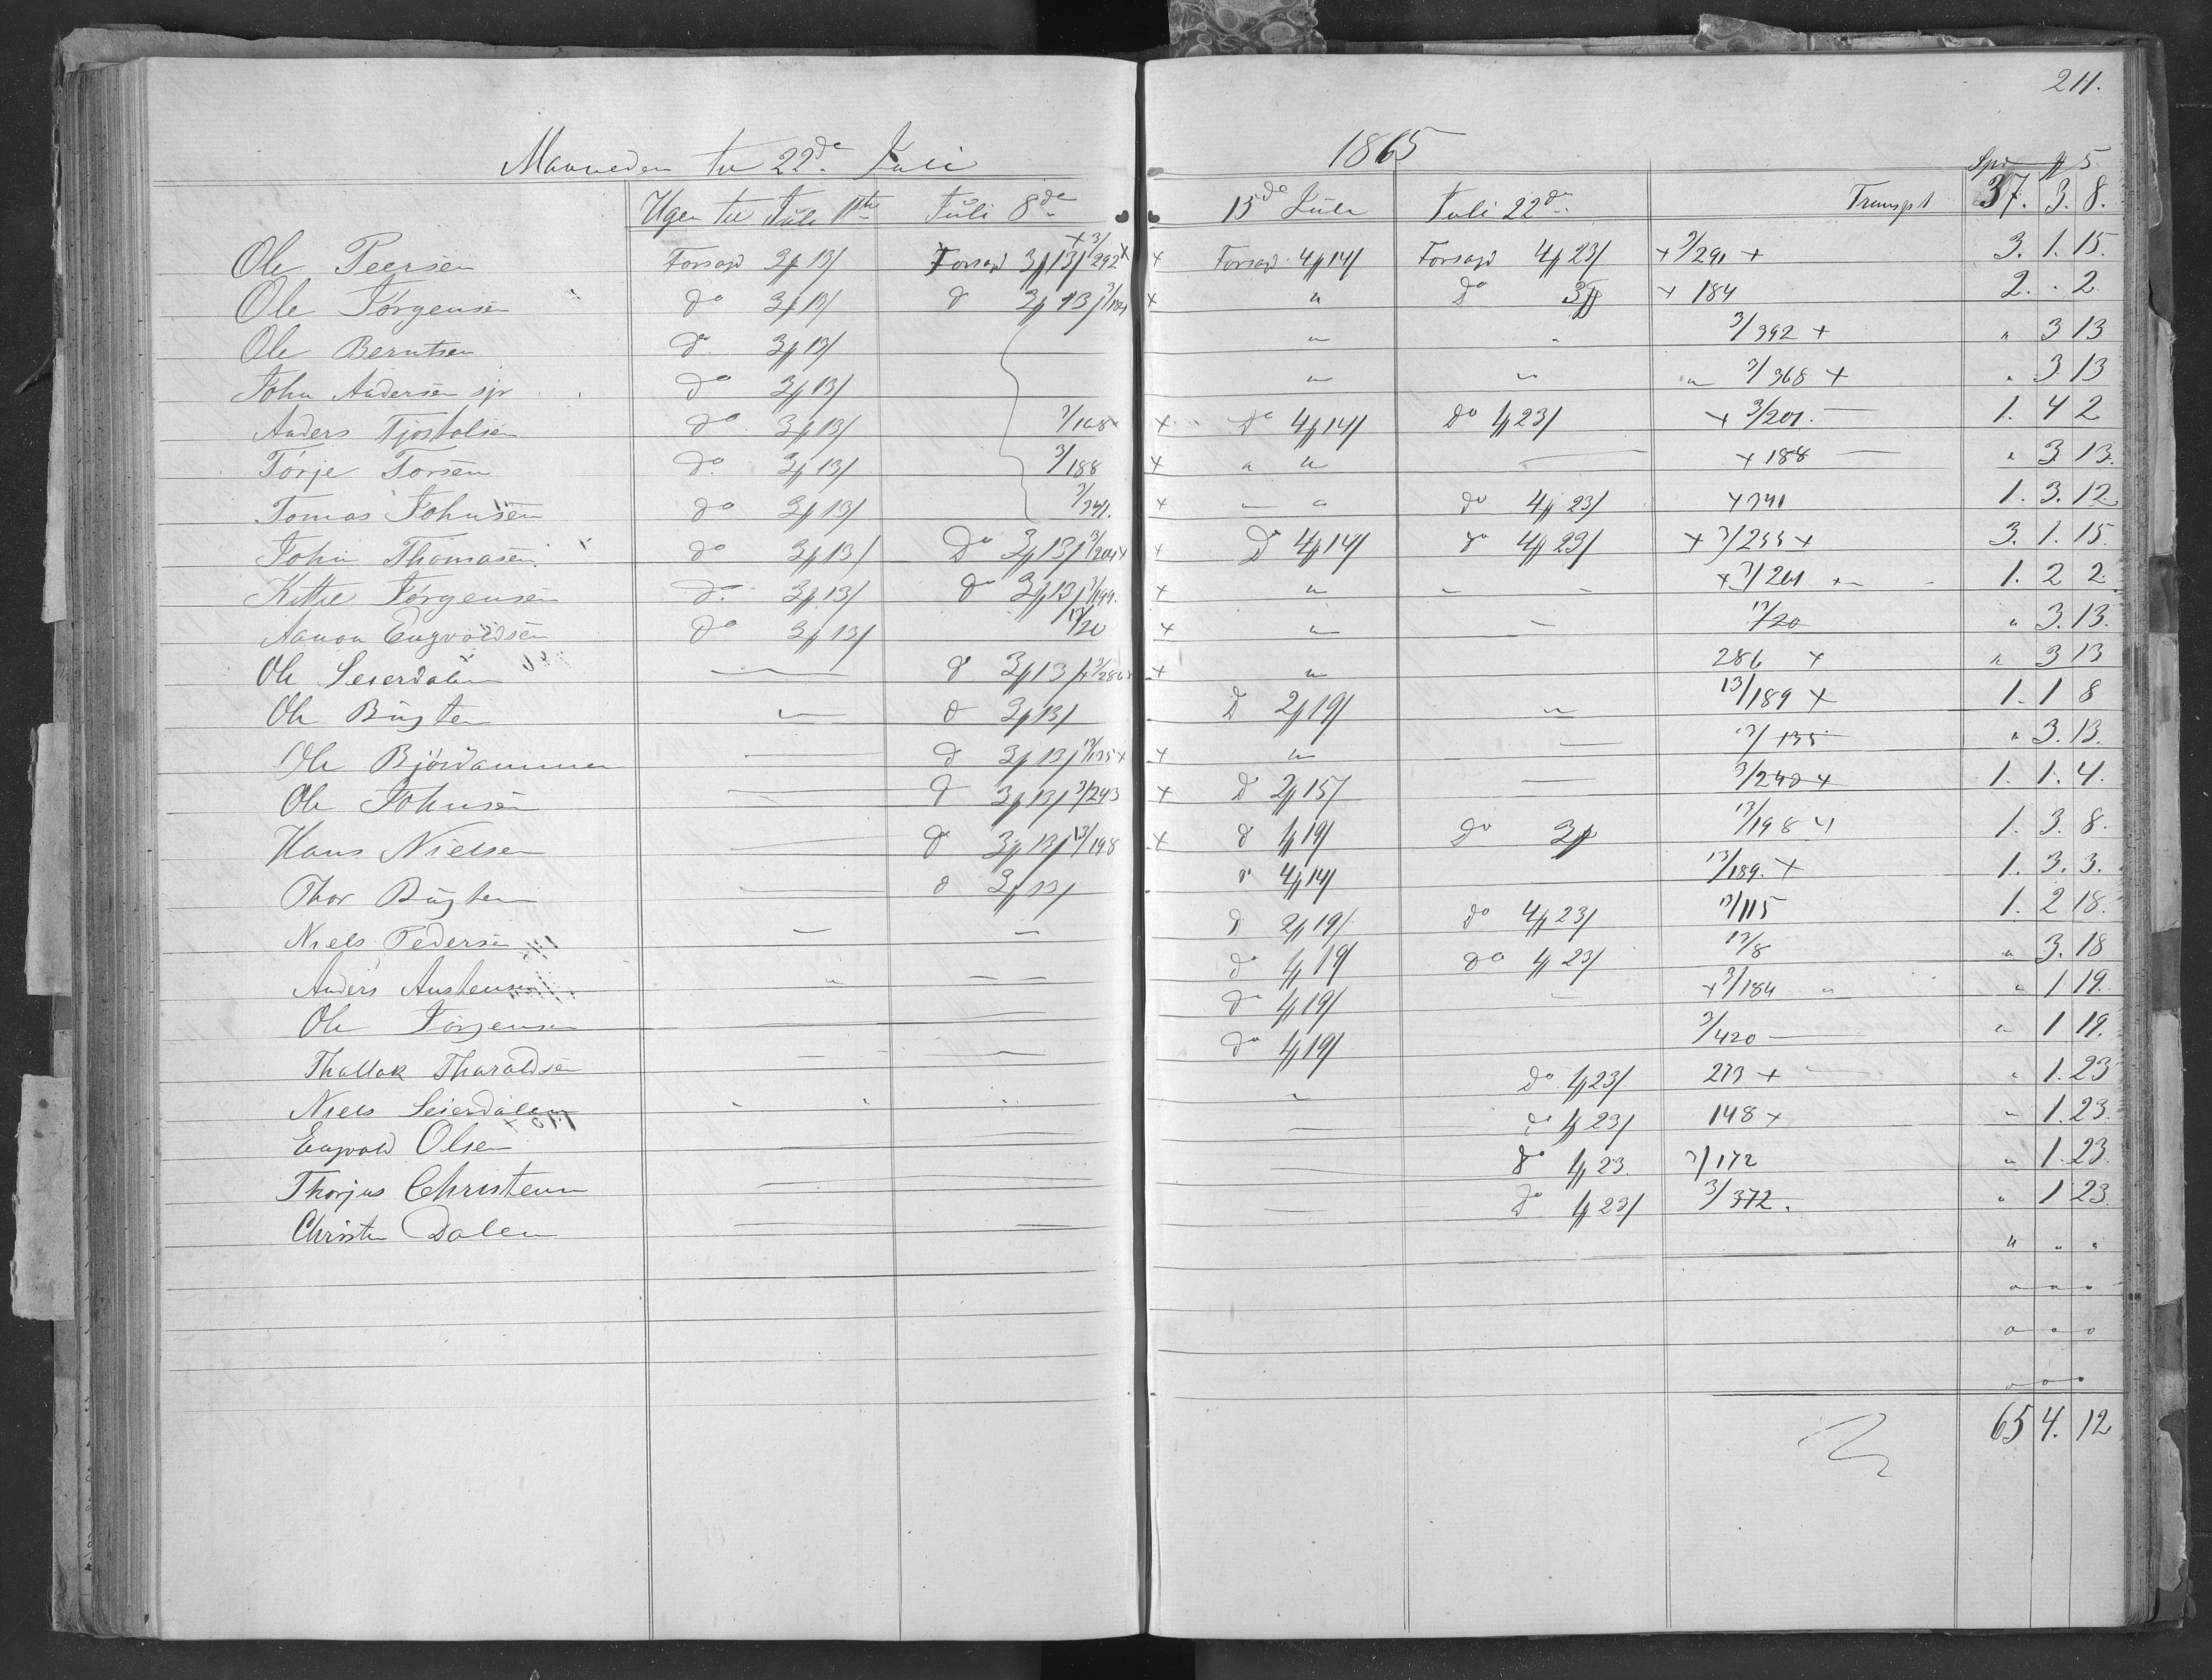 211.
Maaneden til 22de Juli 1865
Spd # S
Ugen til Juli 1ste Juli 8de 15de Juli Juli 22de Transpt 37. 3. 8.
Ole Peersen Forsagd 3# 13/ Forsagd 3# 13/ +3/292+ + Forsagd 4# 14/ Forsagd 4# 23/ +3/291+ 3. 1. 15.
Ole Jørgensen do 3# 13/ d 3# 13/ 3/184 + " do 3# + 184 2. . 2
Ole Berntsen do 3# 13/ " " 3/392 + " 3 13
John Andersen sjr do 3# 13/ " " " 3/368 + " 3 13
Anders Tjostolsen do 3# 13/ 3/168 + do 4# 14/ do 4# 23/ + 3/201. — 1. 4 2
Tørje Torsen do 3# 13/ 3/188 + " " — + 188 — " 3 13.
Tomas Johnsen do 3# 13/ 3/341. + " " do 4# 23/ +341 1. 3. 12
John Thomasen. do 3# 13/ Do 3# 13/ 3/204+ + D 4# 14/ do 4# 23/ + 3/244+ 3. 1. 15.
Kittje Jørgensen do 3# 13/ do 3# 13/ 3/199. + " - - +3/261 1. 2 2.
Aanon Engvoldsen do 3# 13/ 13/20 + " — 13/20 " 3. 13.
Ole Seierdalen — d 3# 13/ +3/286+ + " 286 + " 3 13
Ole Bugten " d 3# 13/ D 2# 19/ " 13/189 + 1. 1 8
Ole Bjørdammen — d 3# 13/ 13/135+ + " — 13/135 " 3. 13.
Ole Johnsen — d 3# 13/ 3/243 + D 2# 15/ — 3/243+ 1. 1. 4.
Hans Nielsen — d 3# 13/ 13/198 + d 1# 19/ Do 3# 13/198 + 1. 3. 8.
Thor Bugten — d 3# 13/ d 4# 14/ 13/189. + 1. 3. 3.
Niels Pedersen — — d 2# 19/ do 4# 23/ 13/115 1. 2 18.
Anders Austensen " — — do 1# 19/ do 1# 23/ 13/8 " 3. 18
Ole Jørgensen — — do 1# 19/ — +3/184 " " 1 19.
Thallak Tharaldsen — — — do 1# 19/ 3/420 — " 1 19.
Niels Seierdalen " " " " do 1# 23/ 273 + — " 1. 23
Engvald Olsen — — — do 1# 23/ 148 + " 1. 23.
Thorjus Christensen — — — do 1# 23. 3/172 " 1. 23.
Christen Dalen — — — do 1# 23/ 3/372. " 1 23
" " "
" " "
" " "
" " "
65 4. 12